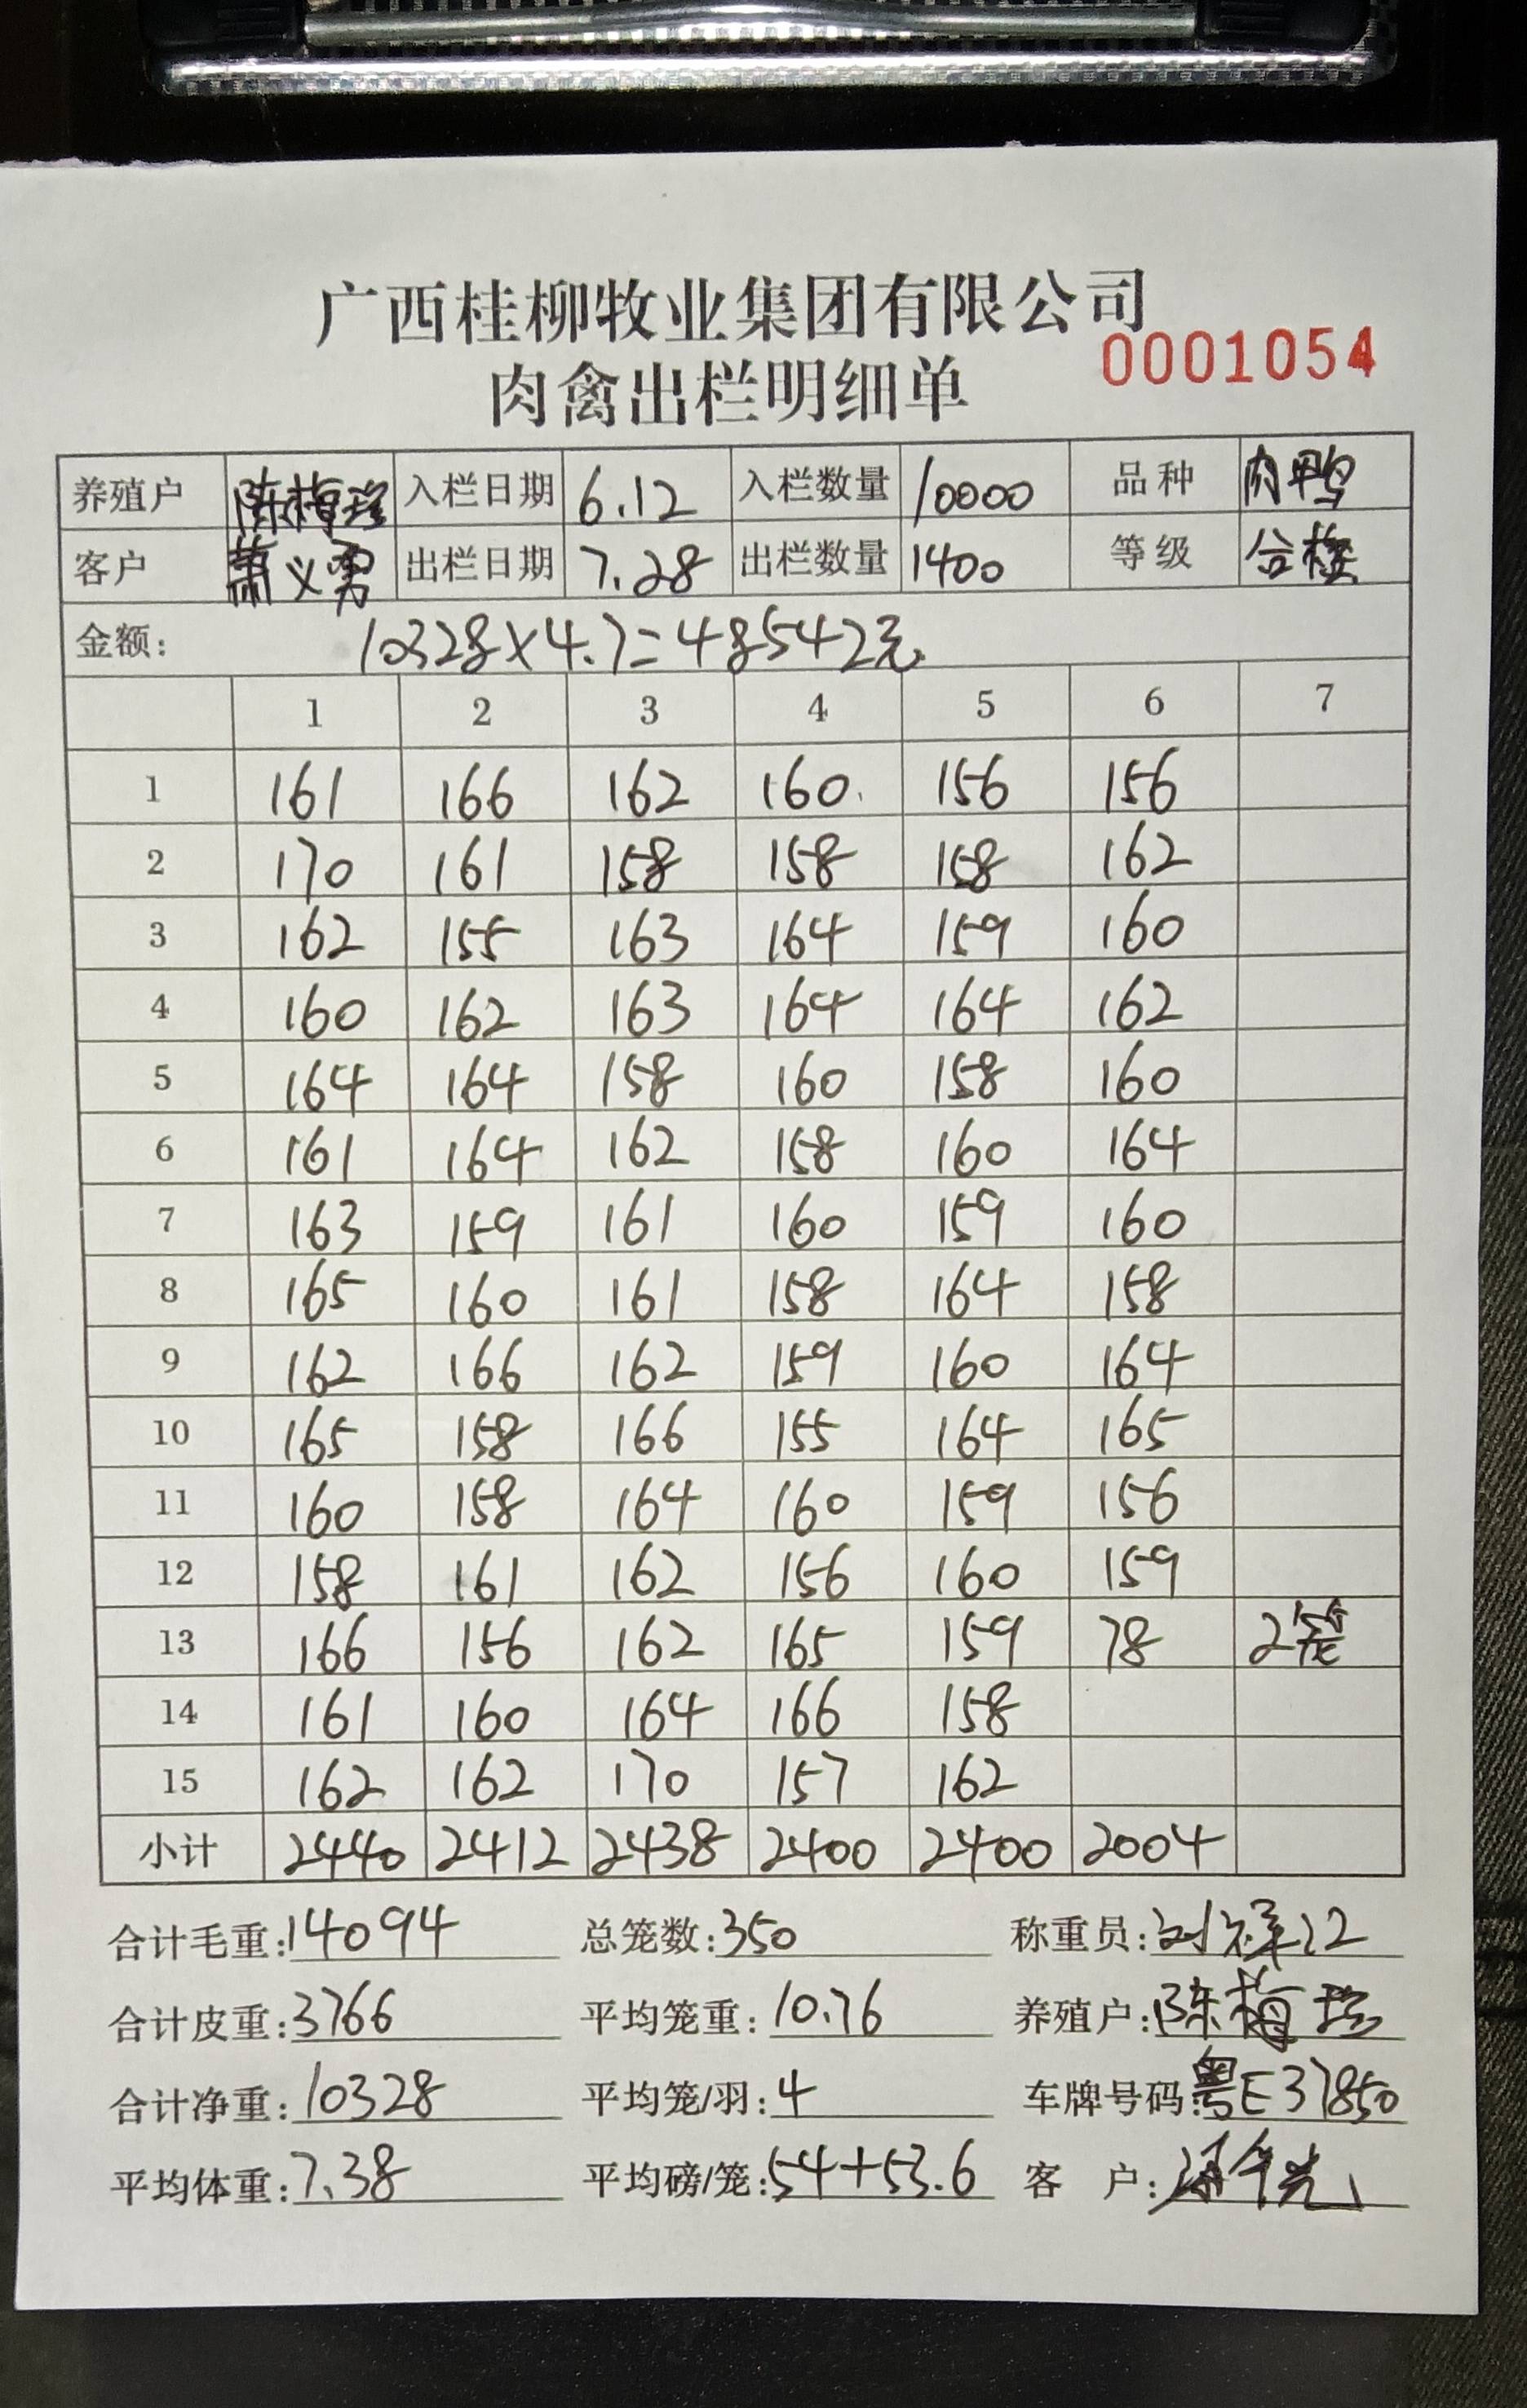 广西桂柳牧业集团有限公司
肉禽出栏明细单 0001054
养殖户 陈梅珍 入栏日期 6.12 入栏数量 10000 品种 肉鸭
客户 萧义勇 出栏日期 7.28 出栏数量 1400 等级 合格
金额: 10328×4.7=48542元
1 2 3 4 5 6 7
1 161 166 162 160 156 156
2 170 161 158 158 158 162
3 162 155 163 164 159 160
4 160 162 163 164 164 162
5 164 164 158 160 158 160
6 161 164 162 158 160 164
7 163 159 161 160 159 160
8 165 160 161 158 164 158
9 162 166 162 159 160 164
10 165 158 166 155 164 165
11 160 158 164 160 159 156
12 158 161 162 156 160 159
13 166 156 162 165 159 78 2笼
14 161 160 164 166 158
15 162 162 170 157 162
小计 2440 2412 2438 2400 2400 2004
合计毛重:14094 总笼数:350 称重员:刘
合计皮重:3766 平均笼重:10.76 养殖户:陈梅珍
合计净重:10328 平均笼/羽:4 车牌号码:粤E37850
平均体重:7.38 平均磅/笼:54+53.6 客 户: